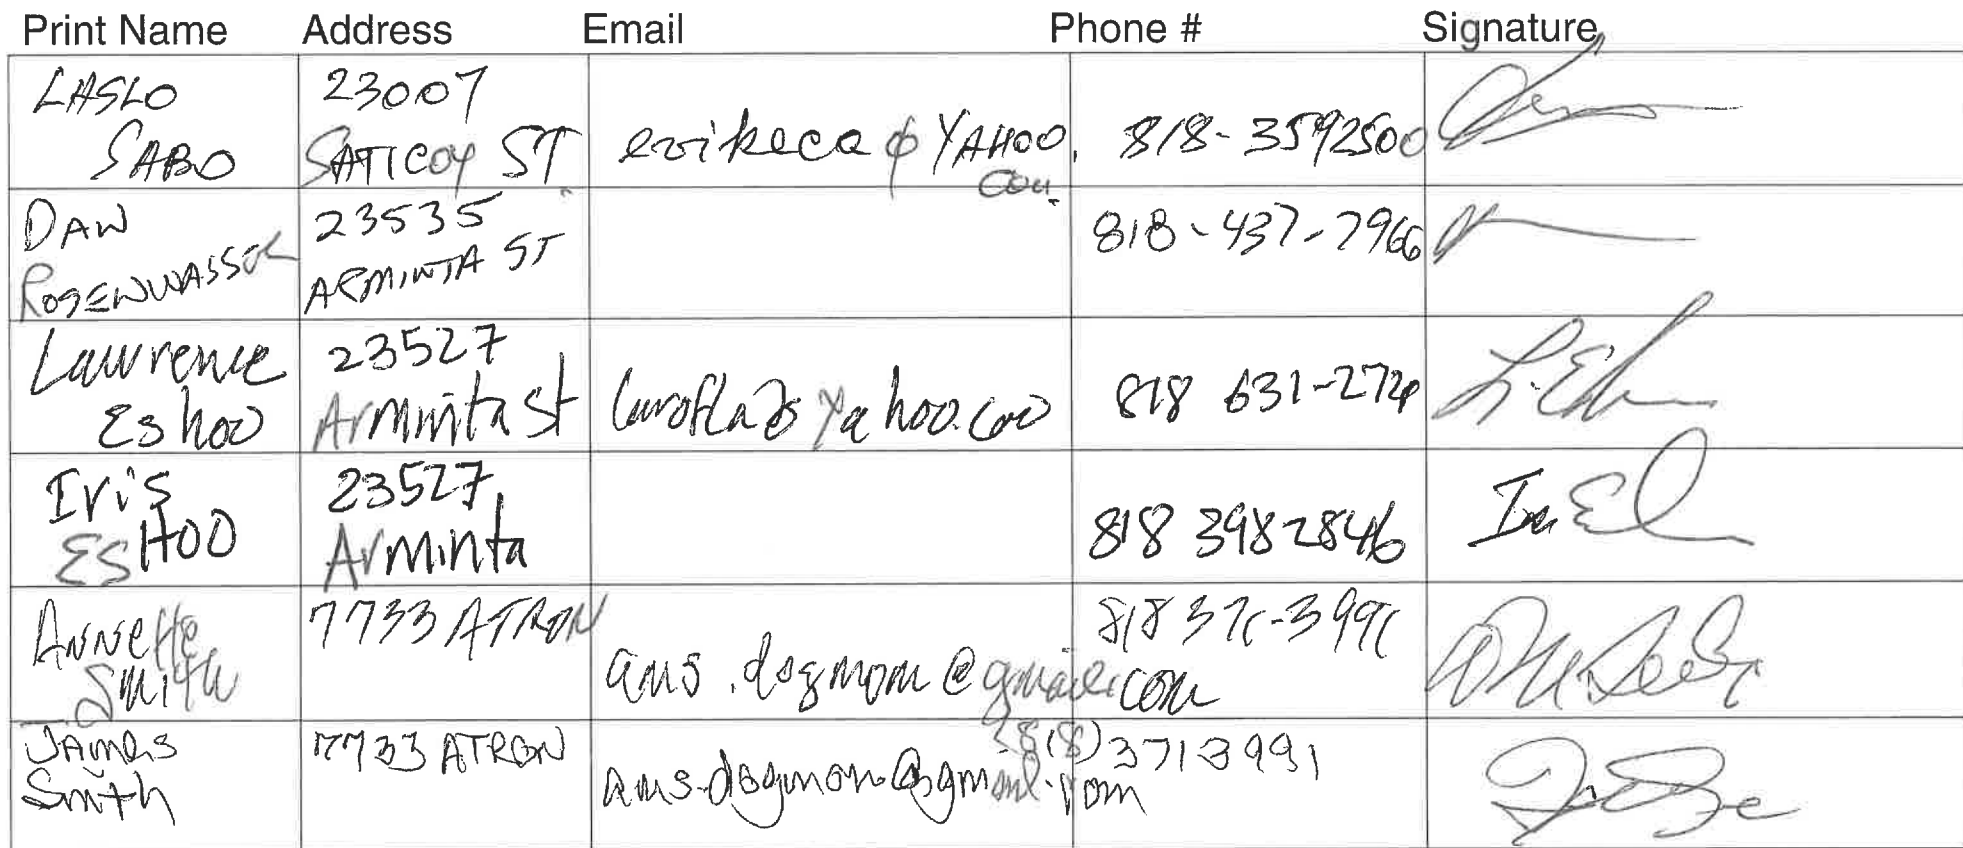 Print Name Address Email Phone # Signature
LASLO
SABO
23007
SATICOY ST.
erikeca@YAHOO.
com.
818-3592500
DAN
ROSENWASSER
23535
ARMINTA ST
818-437-7966
Lawrence
Eshoo
23527
Arminta St
Yahoo.com
818 631-272
Iris
EsHOO
23527
Arminta
818 398 2846
ANNette
Smith
7733 ATRON
ams.dogmom@gmail.com
818 371-3991
JAmes
Smith
7733 ATRON
ams.dogmom@gmail.com
(818) 371 3991